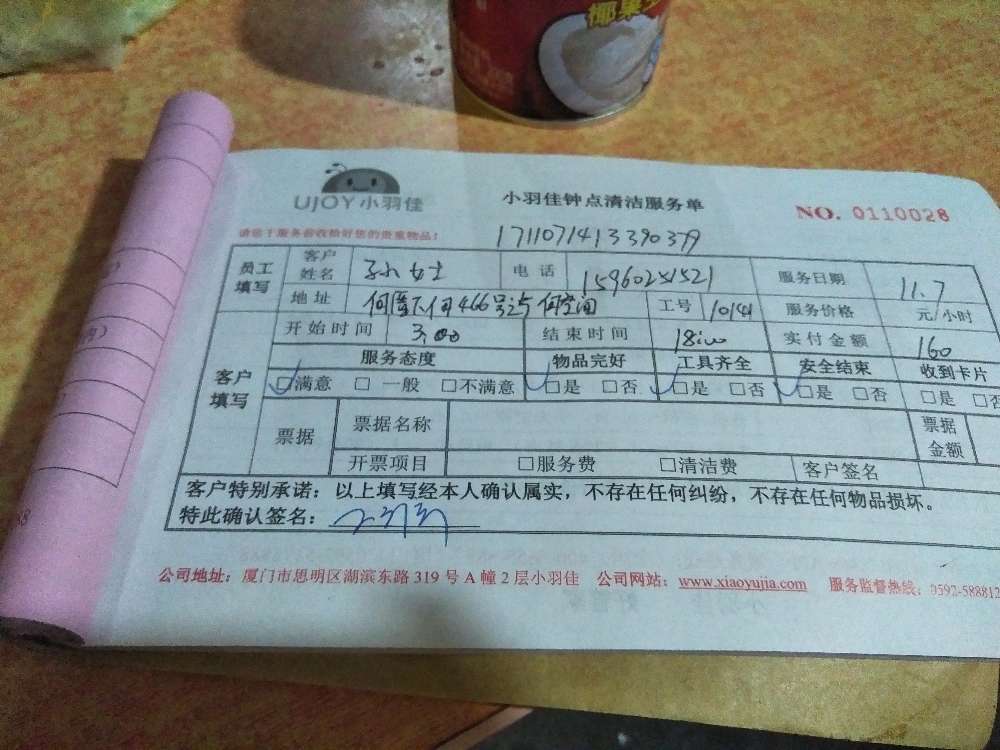 椰果
UJOY 小羽佳
小羽佳钟点清洁服务单
NO. 0110028
请您于服务前收拾好您的贵重物品!
1711071413390379
员工填写 客户姓名 孙女士 电话 15960251521 服务日期 11.7
地址 何厝下何466号 空间 工号 10141 服务价格 元/小时
开始时间 3:00 结束时间 18:00 实付金额 160
客户填写 服务态度 物品完好 工具齐全 安全结束 收到卡片
☑满意 □一般 □不满意 ☑是 □否 ☑是 □否 ☑是 □否 □是 □否
票据 票据名称 票据金额
开票项目 □服务费 □清洁费 客户签名
客户特别承诺:以上填写经本人确认属实,不存在任何纠纷,不存在任何物品损坏。
特此确认签名:
公司地址:厦门市思明区湖滨东路 319 号 A 幢 2 层小羽佳 公司网站:www.xiaoyujia.com 服务监督热线:0592-588812